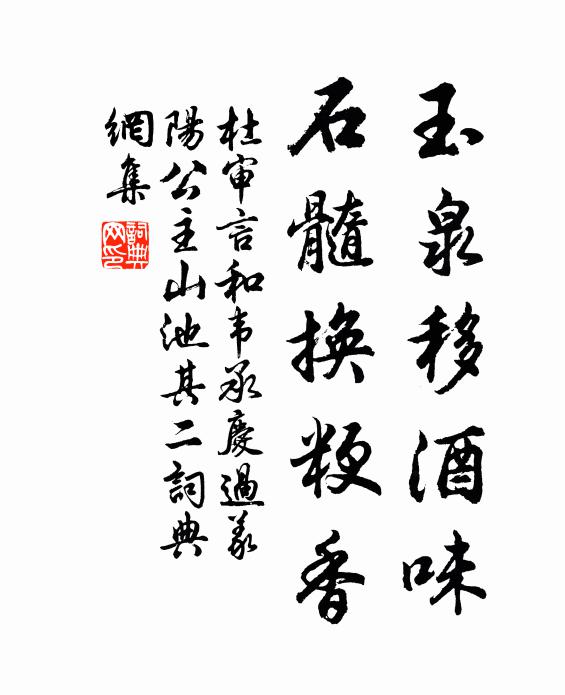 玉泉移酒味
石髓換粳香
杜审言和韦承慶過義
陽公主山池其二詞典
網集
詞典網印